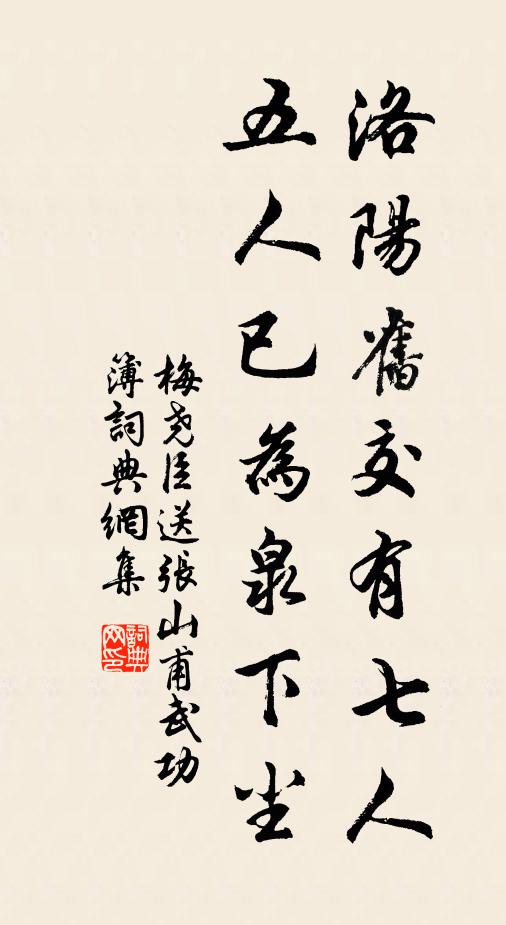 洛陽舊交有七人
五人已為泉下尘
梅尧臣送張山甫武功
簿詞典網集
詞典网印